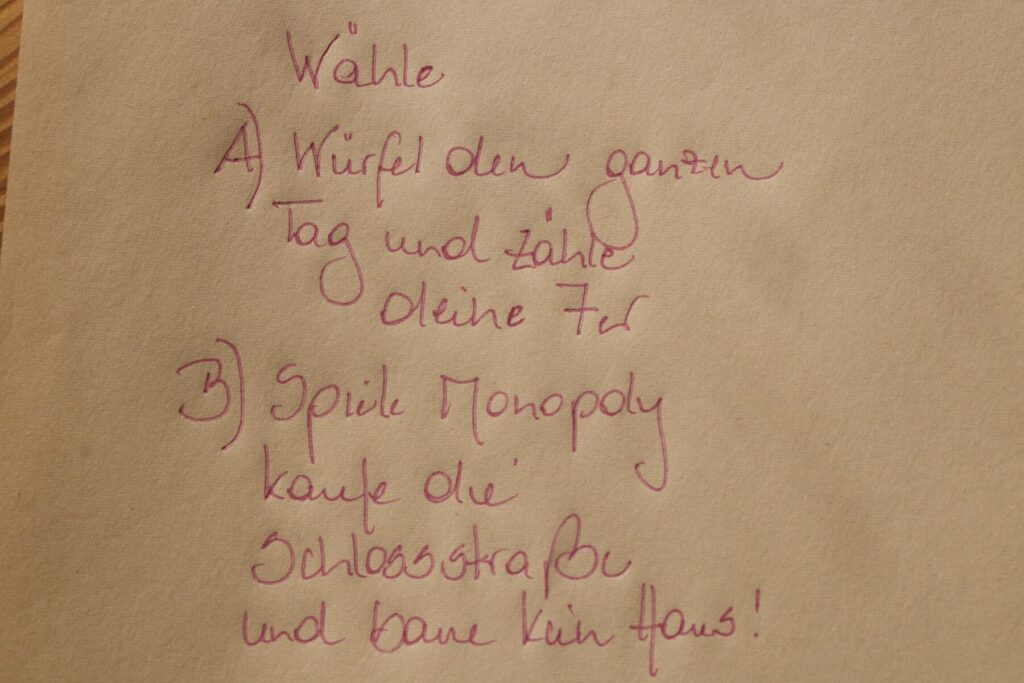 Wähle
A) Würfel den ganzen
Tag und zähle
deine 7er
B) Spiele Monopoly
kaufe die
Schlossstraße
und baue kein Haus!